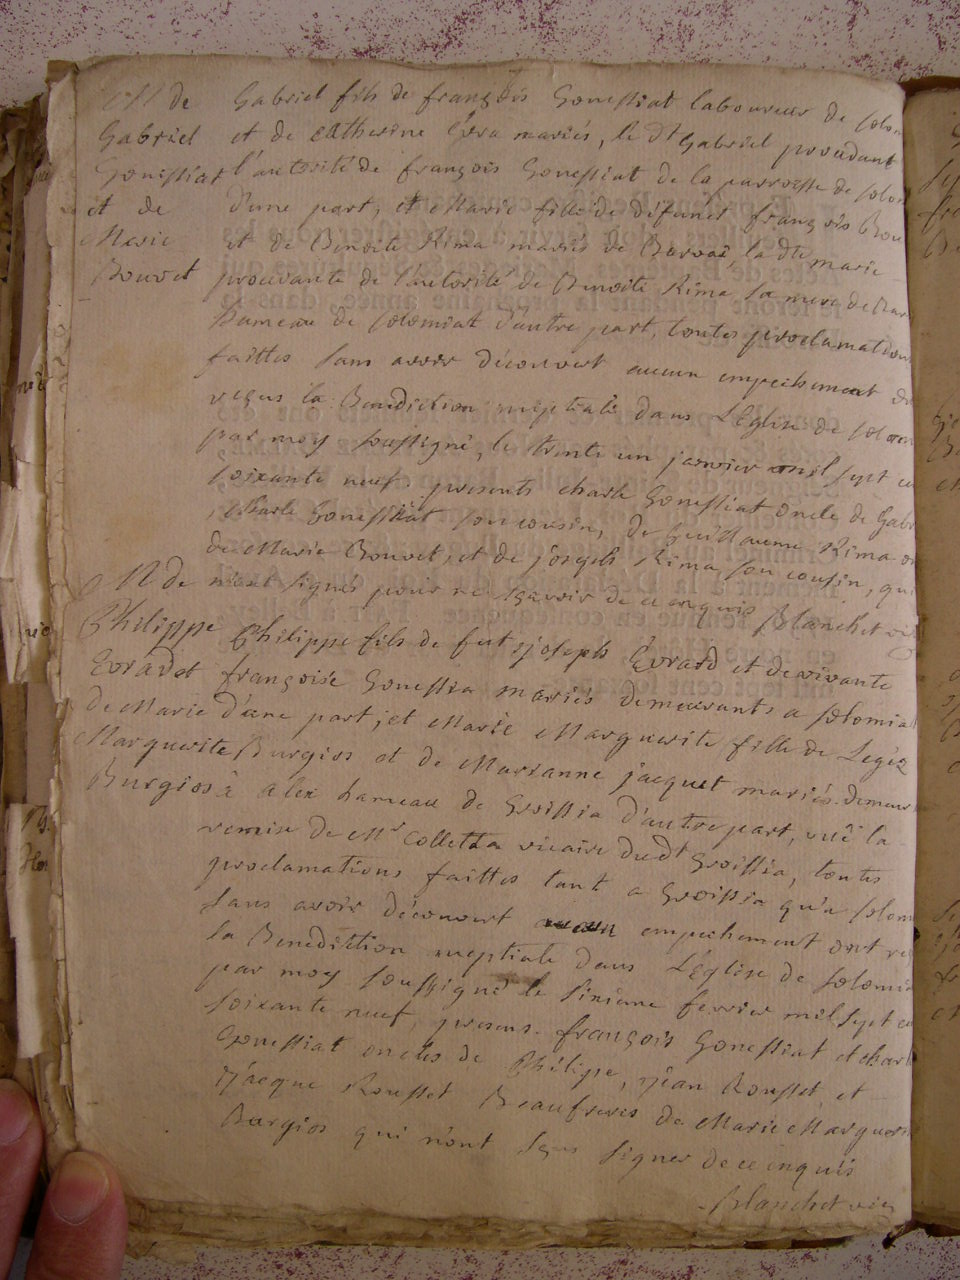 M de
Gabriel
Gonessiat
et de
Marie
Bouvet
Gabriel fils de françois Gonessiat laboureur de solom
et de catherine Evra mariés, le dt Gabriel procedant
l'autorité de françois Gonessiat de la parroesse de solom
d'une part, et Marie fille de defunct françois Bou
et de Benoite Rima mariés de , la dte marie
procedante de l'autorité de Benoite Rima sa mere de
hameau de solomiat d'autre part, toutes proclamations
faittes sans avoir découvert aucun empechement
reçus la Benediction nuptiale dans L'Eglise de solom
par moy soussigné, le trente un janvier mil sept ce
soixante neuf, presents charle Gonessiat oncle de Gabr
, charle Gonessiat son cousin, de Guillaume Rima on
de Marie Bouvet, et de joseph Rima son cousin, qui
n'ont signés pour ne sçavoir de ce enquis Blanchet vic
M de
Philippe
Evrad et
de Marie
Marguerite
Burgios
Philippe fils de feut joseph Evrard et de vivante
françoise Gonessia mariés demeurants a solomia
d'une part, et Marie Marguerite fille de Legéz
Burgios et de Marianne jacquet mariés demeur
à alex hameau de Groissia d'autre part, vuë la
remise de Mr Colletta vicaire dudt Groissia, toutes
proclamations faittes tant a Groissia qu'a solom
sans avoir découvert empechement ont re
la Benediction nuptiale dans L'Eglise de solomia
par moy soussigné le sixieme fevrier mil sept ce
soixante neuf, presens françois Gonessiat et charl
Gonessiat oncles de Philipe, jean Rousset, et
jacque Rousset Beaufreres de Marie Marguer
Burgios qui n'ont sçus signer de ce enquis
Blanchet vic